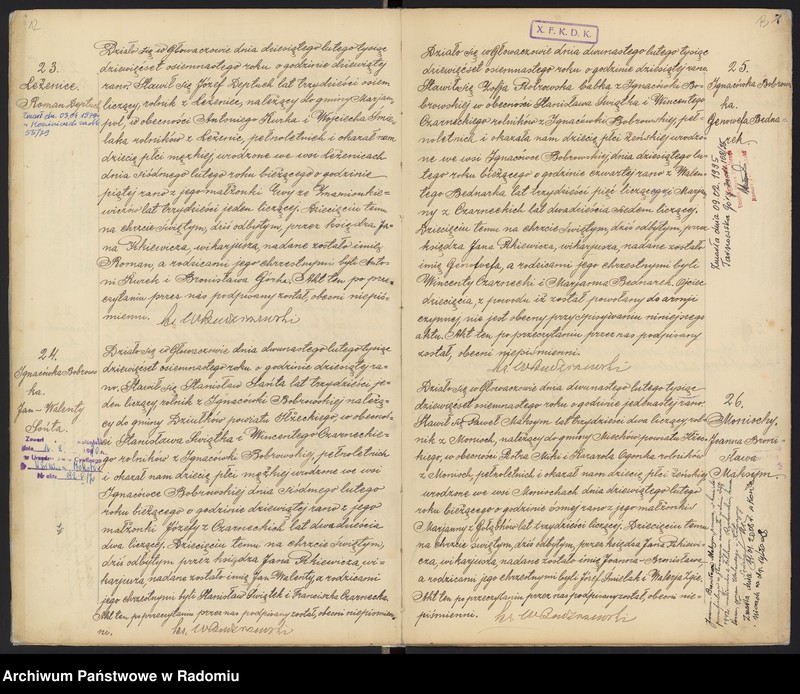 12
23.
Leżenice.
Roman Deptuch
Działo się w Głowaczowie dnia dziesiątego lutego tysiąc
dziewięćset osiemnastego roku o godzinie dziewiątej
rano. Stawił się Józef Deptuch lat trzydzieści osiem
liczący, rolnik z Leżenic, należący do gminy Marjam-
pol, w obecności Antoniego Kurka i Wojciecha
rolników z Leżenic, pełnoletnich i okazał nam
dziecię płci męzkiej urodzone we wsi Leżenicach
dnia siódmego lutego bieżącego o godzinie
piątej rano z jego małżonki Ewy ze
lat trzydzieści jeden liczącej. Dziecięciu temu
na chrzcie świętym, dziś odbytym, przez księdza Ja-
na Pkiewicza, wikarjusza, nadane zostało imię
Roman, a rodzicami jego chrzestnymi byli Anto-
ni Kurek i Bronisława Górka. Akt ten po prze-
czytaniu przez nas podpisany został, obecni niepiś-
mienni.
24.
Ignacówka Bobrows-
ka.
Jan-Walenty
Sońta.
Działo się w Głowaczowie dnia dwunastego lutego tysiąc
dziewięćset osiemnastego roku o godzinie dziesiątej ra-
no. Stawił się Stanisław Sońta lat trzydzieści je-
den liczący rolnik z Ignacówki Bobrowskiej należą-
cy do gminy powiatu w obecnoś-
ci Stanisława Świątka i Wincentego Czarneckie-
go rolników z Ignacówki Bobrowskiej, pełnoletnich
i okazał nam dziecię płci męzkiej urodzone we wsi
Ignacówce Bobrowskiej dnia siódmego lutego
roku bieżącego o godzinie dziewiątej rano z jego
małżonki Józefy z Czarneckich lat dwadzieścia
dwa liczącej. Dziecięciu temu na chrzcie świętym,
dziś odbytym przez księdza Jana Pkiewicza, wi-
karjusza, nadane zostało imię Jan Walenty, a rodzicami
jego chrzestnymi byli Stanisław Świątek i Franciszka Czarnecka.
Akt ten po przeczytaniu przez nas podpisany został, obecni niepiśmien-
ni.
X. F. K. D. K.
25.
Ignacówka Bobrows-
ka.
Genowefa Bedna-
rek
Działo się w Głowaczowie dnia dwunastego lutego tysiąc
dziewięćset osiemnastego roku o godzinie dziesiątej rano
Stawiła się Zofja Bobrowska babka z Ignacówki Bo-
browskiej w obecności Stanisława Świątka i Wincentego
Czarneckiego rolników z Ignacówki Bobrowskiej, peł-
noletnich i okazała nam dziecię płci żeńskiej urodzo-
ne we wsi Ignacówce Bobrowskiej, dnia dziesiątego lu-
tego roku bieżącego o godzinie czwartej rano z Walen-
tego Bednarka lat trzydzieści pięć liczącego i Marjan-
ny z Czarneckich lat dwadzieścia siedem liczącej.
Dziecięciu temu na chrzcie świętym, dziś odbytym, przez
księdza Jana Pkiewicza, wikarjusza, nadane zostało
imię Genowefa, a rodzicami jego chrzestnymi byli
Wincenty Czarnecki i Marjanna Bednarek. Ojciec
dziecięcia, z powodu iż został powołany do armji
czynnej nie jest obecny przy spisywaniu niniejszego
aktu. Akt ten po przeczytaniu przez nas podpisany
został, obecni niepiśmienni.
26.
Moniochy.
Joanna Broni-
sława
Maksym
Działo się w Głowaczowie dnia dwunastego lutego tysiąc
dziewięćset osiemnastego roku o godzinie jedenastej rano.
Stawił się Paweł Maksym lat trzydzieści dwa liczący rol-
nik z Monioch, należący do gminy
w obecności Piotra Miki i Karola Ogonka rolników
z Monioch, pełnoletnich i okazał nam dziecię płci żeńskiej
urodzone we wsi Moniochach dnia dziewiątego lutego
roku bieżącego o godzinie ósmej rano z jego małżonki
Marjanny z lat trzydzieści liczącej. Dziecięciu temu
na chrzcie świętym, dziś odbytym, przez księdza Jana Pkiewi-
cza, wikarjusza, nadane zostało imię Joanna-Bronisława
a rodzicami jego chrzestnymi byli Józef Śmietak i Walerja
Akt ten po przeczytaniu przez nas podpisany został, obecni nie-
piśmienni.
Archiwum Państwowe w Radomiu